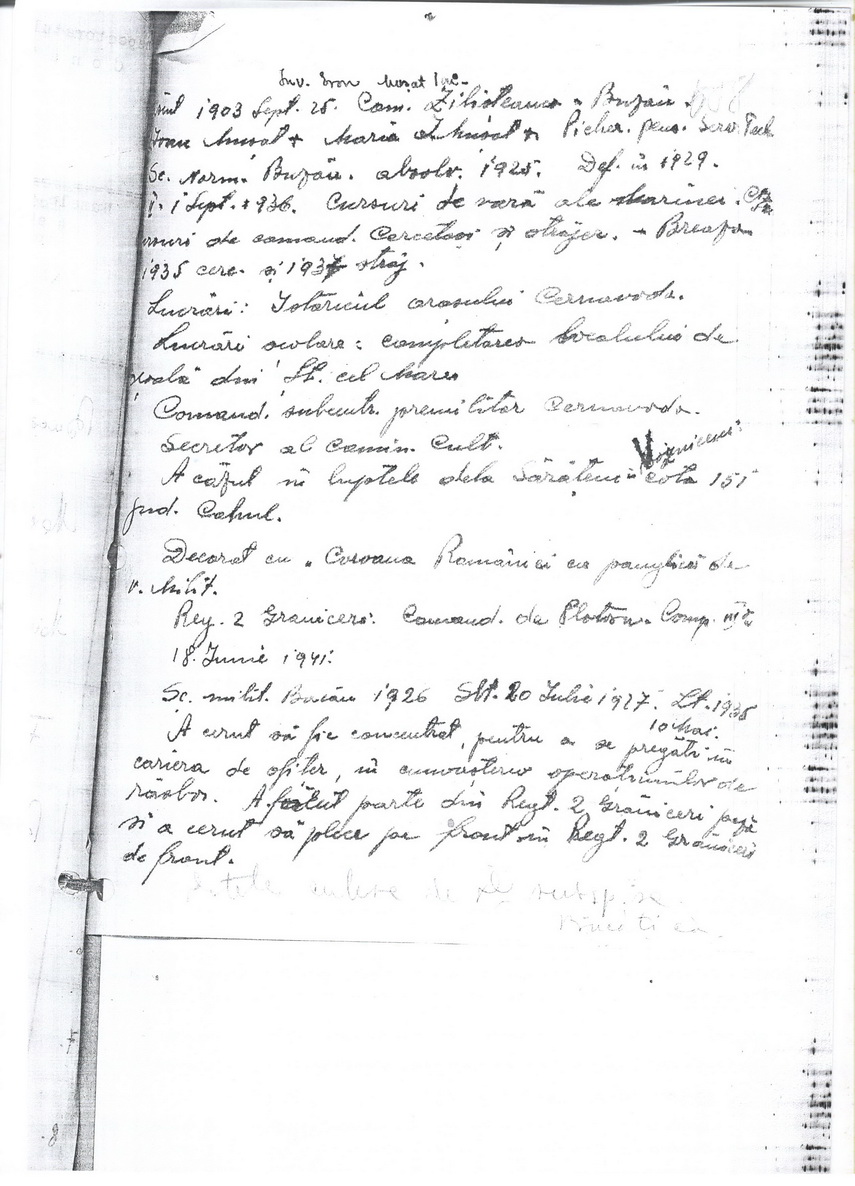 Inv. Ion Mușat
1903 Sept. 25. Com. Zilișteanca - Buzău.
Ioan Mușat + Maria I. Mușat + Picher. pens.
Sc. Norm. Buzău. absolv. 1925. Def. în 1929.
I. 1 Sept. 1936. Cursuri de vară ale Marinei.
de comand. Cercetași și străjer. - Breaza
1935 cerc. și 1937 străj.
Lucrări: Istoricul orașului Cernavoda.
Lucrări școlare: completarea localului de
școală din Șt. cel Mare
Comand. subcentr. premilitar Cernavoda.
Secretar al Cămin. Cult.
A căzut în luptele dela Sărățeni cota 151
jud. Cahul.
Decorat cu „Coroana României cu panglică de
v. Milit.
Reg. 2 Graniceri. Comand. de Pluton. Comp.
18. Iunie 1941.
Sc. milit. Bacău 1926 Slt. 20 Iulie 1927. Lt. 1935
10 Mai.
A cerut să fie concentrat, pentru a se pregăti în
cariera de ofițer, în cunoașterea operațiunilor de
răsboi. A făcut parte din Regt. 2 Grăniceri pază
și a cerut să plece pe front în Regt. 2 Grăniceri
de front.